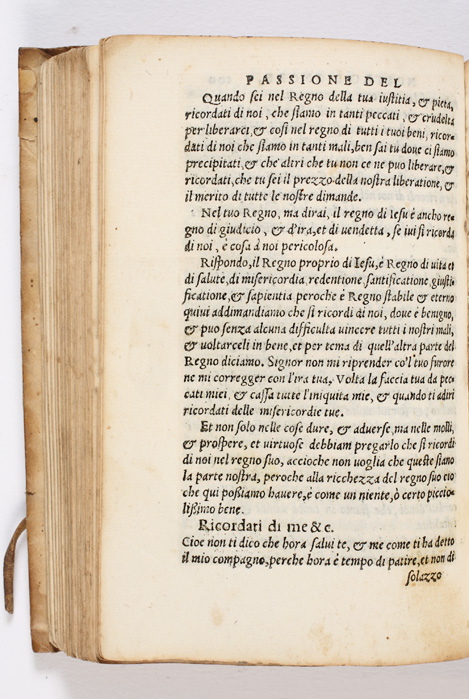 PASSIONE DEL
Quando sei nel Regno della tua iustitia, & pieta,
ricordati di noi, che siamo in tanti peccati, & crudelta
per liberarci, & cosi nel regno di tutti i tuoi beni, ricor-
dati di noi che siamo in tanti mali, ben sai tu doue ci siamo
precipitati, & che altri che tu non ce ne puo liberare, &
ricordati, che tu sei il prezzo della nostra liberatione, &
il merito di tutte le nostre dimande.
Nel tuo Regno, ma dirai, il regno di Iesu è ancho re-
gno di giudicio, & d'ira, et di uendetta, se iui si ricorda
di noi, è cosa à noi pericolosa.
Rispondo, il Regno proprio di Iesu, è Regno di uita et
di salute, di misericordia, redentione, santificatione, giusti-
ficatione, & sapientia peroche è Regno stabile & eterno
quiui addimandiamo che si ricordi di noi, doue è benigno,
& puo senza alcuna difficulta uincere tutti i nostri mali,
& uoltarceli in bene, et per tema di quell'altra parte del
Regno diciamo. Signor non mi riprender co'l tuo furore
ne mi corregger con l'ira tua, Volta la faccia tua da pec-
cati miei, & cassa tutte l'iniquita mie, & quando ti adiri
ricordati delle misericordie tue.
Et non solo nelle cose dure, & aduerse, ma nelle molli,
& prospere, et uirtuose debbiam pregarlo che si ricordi
di noi nel regno suo, accioche non uoglia che queste siano
la parte nostra, peroche alla ricchezza del regno suo cio
che qui possiamo hauere, è come un niente, ò certo piccio-
lissimo bene.
Ricordati di me & c.
Cioe non ti dico che hora salui te, & me come ti ha detto
il mio compagno, perche hora è tempo di patire, et non di
solazzo